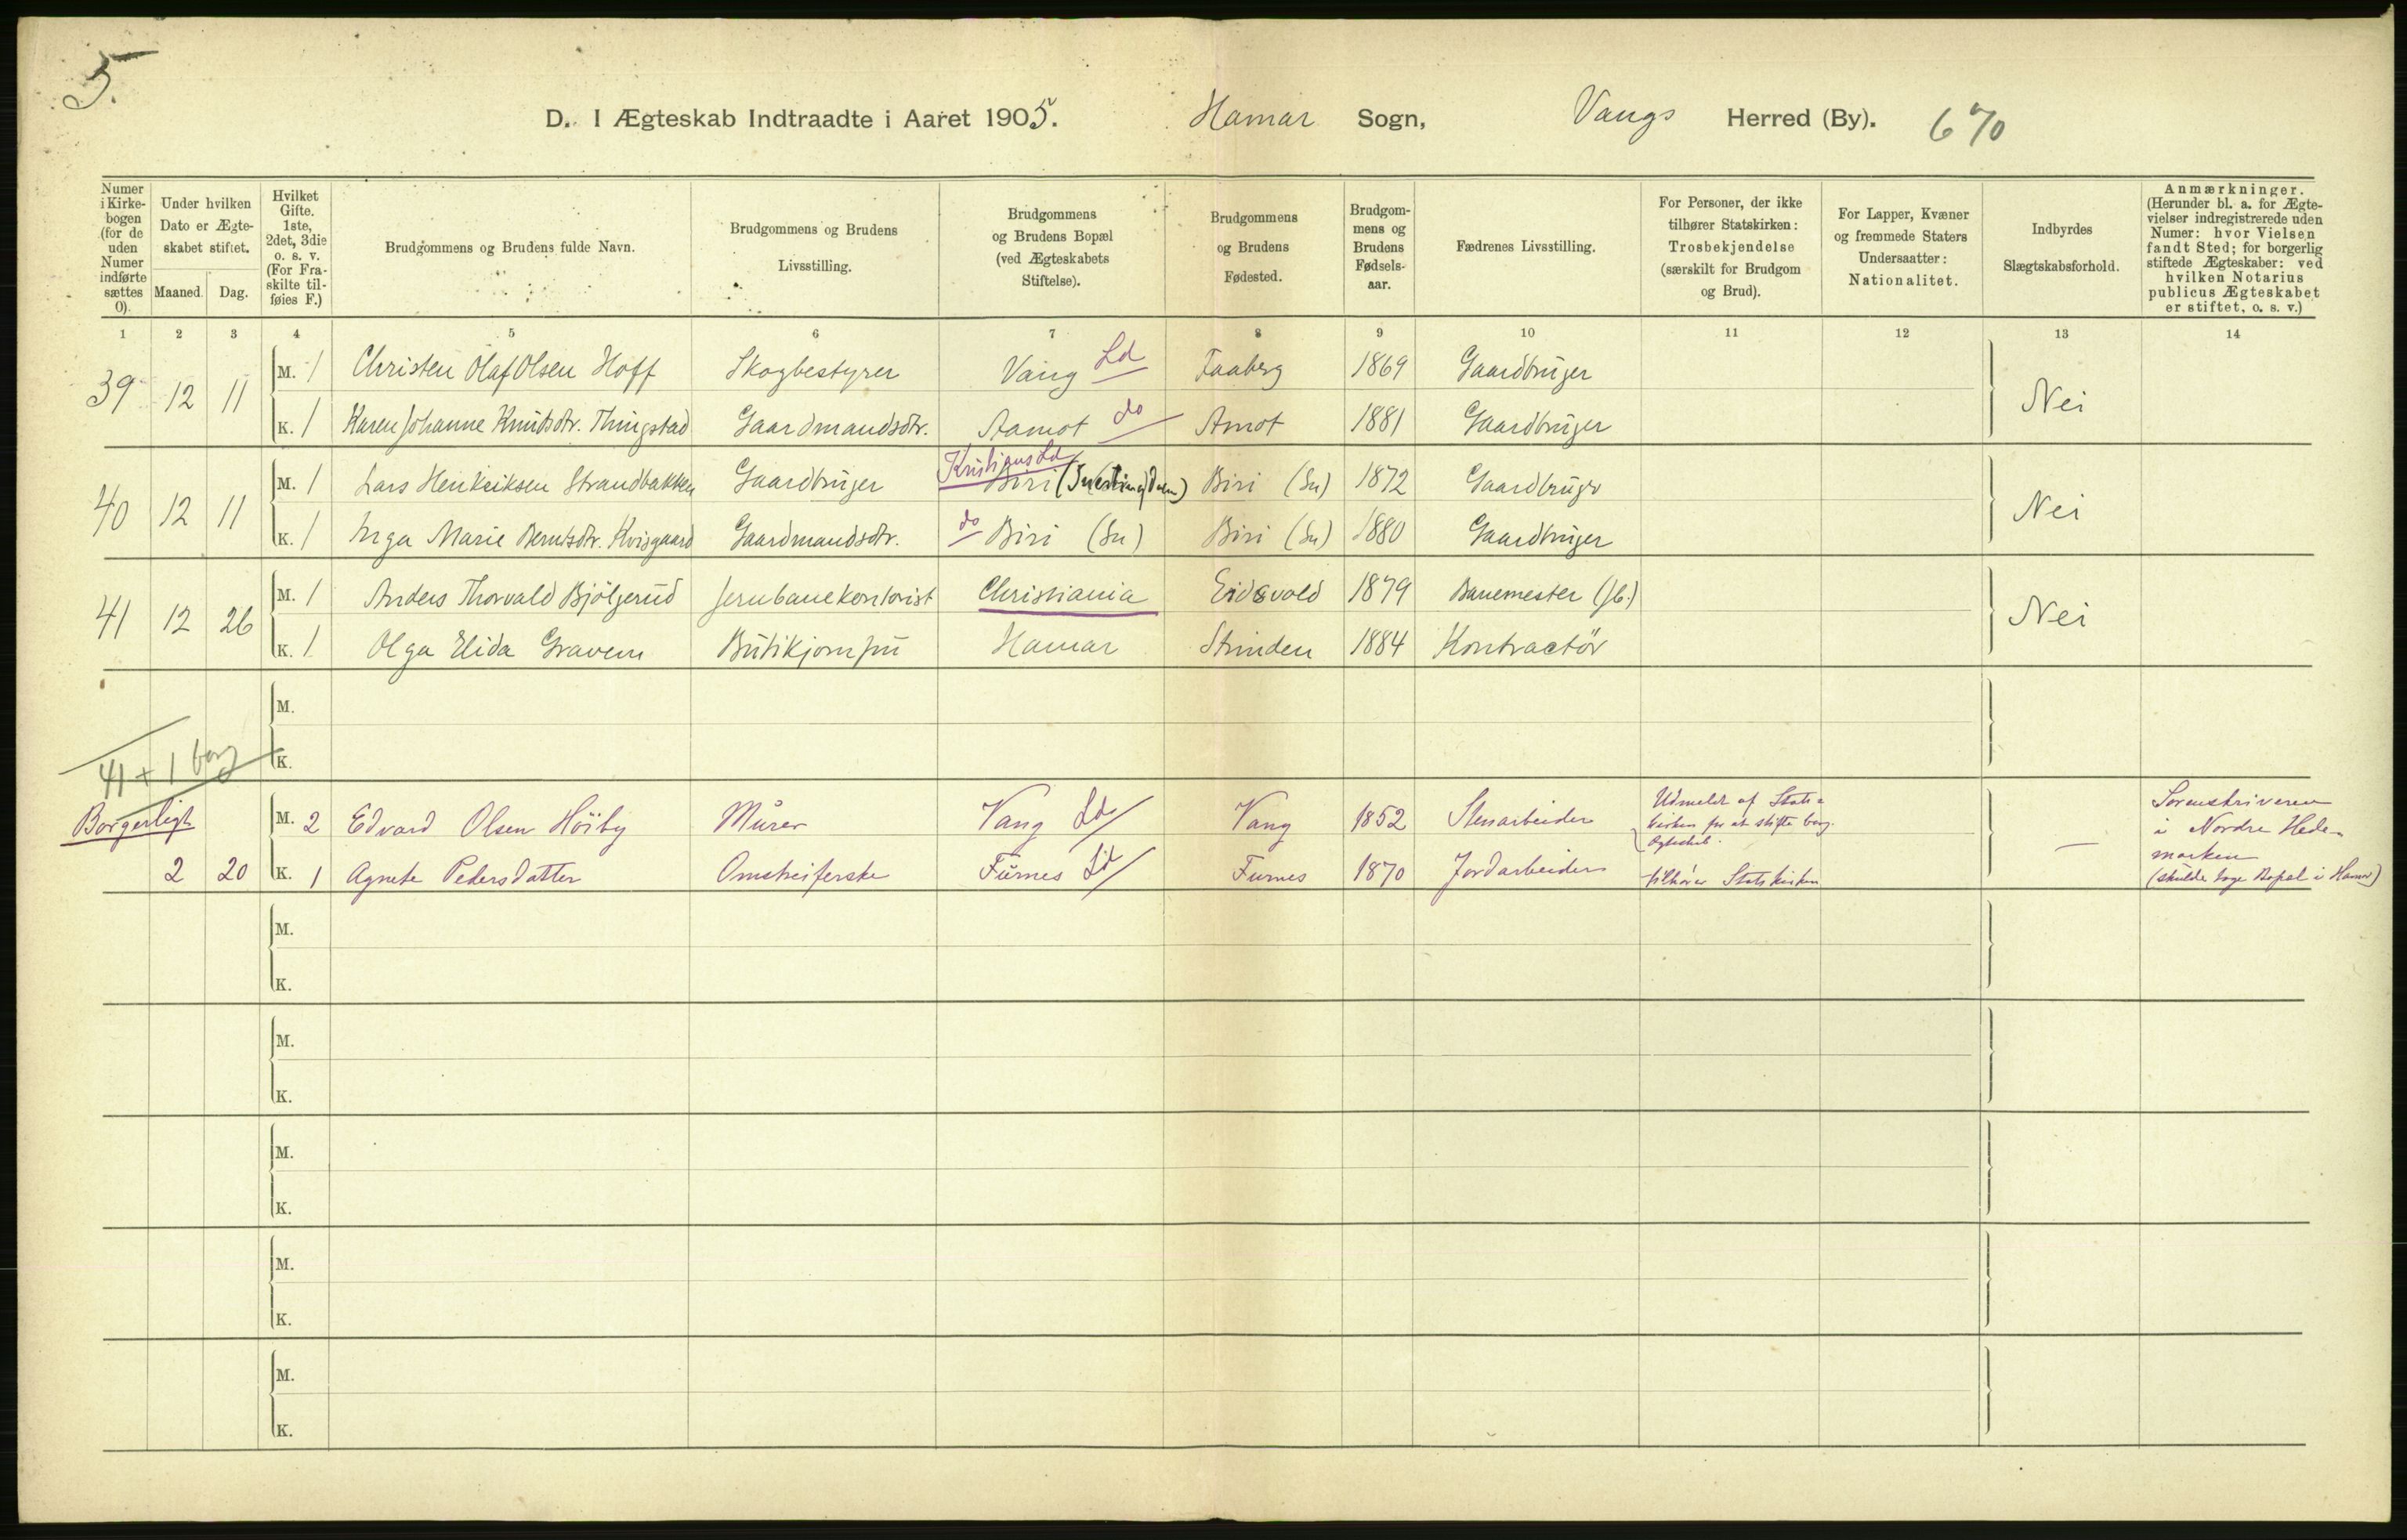 5.
D. I Ægteskab Indtraadte i Aaret 1905. Hamar Sogn, Vangs Herred (By). 670
Numer i Kirke-bogen (for de uden Numer indførte sættes 0).
Under hvilken Dato er Ægte-skabet stiftet.
Maaned. Dag.
Hvilket Gifte. 1ste, 2det, 3die o. s. v. (For Fra-skilte til-føies F.)
Brudgommens og Brudens fulde Navn.
Brudgommens og Brudens Livsstilling.
Brudgommens og Brudens Bopæl (ved Ægteskabets Stiftelse).
Brudgommens og Brudens Fødested.
Brudgom-mens og Brudens Fødsels-aar.
Fædrenes Livsstilling.
For Personer, der ikke tilhører Statskirken: Trosbekjendelse (særskilt for Brudgom og Brud).
For Lapper, Kvæner og fremmede Staters Undersaatter: Nationalitet.
Indbyrdes Slægtskabsforhold.
Anmærkninger. (Herunder bl. a. for Ægte-vielser indregistrerede uden Numer: hvor Vielsen fandt Sted; for borgerlig stiftede Ægteskaber: ved hvilken Notarius publicus Ægteskabet er stiftet, o. s. v.)
1 2 3 4 5 6 7 8 9 10 11 12 13 14
39 12 11 M. 1 Christen Olaf Olsen Hoff Skogbestyrer Vang Ld Faaberg 1869 Gaardbruger Nei
K. 1 Karen Johanne Knutsdtr. Thingstad Gaardmandsdtr. Aamot do Amot 1881 Gaardbruger
40 12 11 M. 1 Lars Henriksen Strandbakken Gaardbruger Kristians Ld Biri (Snertingdalen) Biri (Sn) 1872 Gaardbruger Nei
K. 1 Inga Marie Berntsdtr. Kvisgaard Gaardmandsdtr. do Biri (Sn) Biri (Sn) 1880 Gaardbruger
41 12 26 M. 1 Anders Thorvald Bjölgerud Jernbanekontorist Christiania Eidsvold 1879 Banemester (Jb.) Nei
K. 1 Olga Elida Gravem Butikjomfru Hamar Strinden 1884 Kontractör
M.
K.
41 + 1 borg
Borgerligt M. 2 Edvard Olsen Höiby Murer Vang Ld Vang 1852 Stenarbeider Udmeldt af Stats-kirken for at stifte borg. Ægteskab. — Sorenskriveren i Nordre Hede-marken (skulde tage Bopæl i Hamar)
2 20 K. 1 Agnete Pedersdatter Omstreiferske Furnes Ld Furnes 1870 Jordarbeider tilhører Statskirken
M.
K.
M.
K.
M.
K.
M.
K.
M.
K.